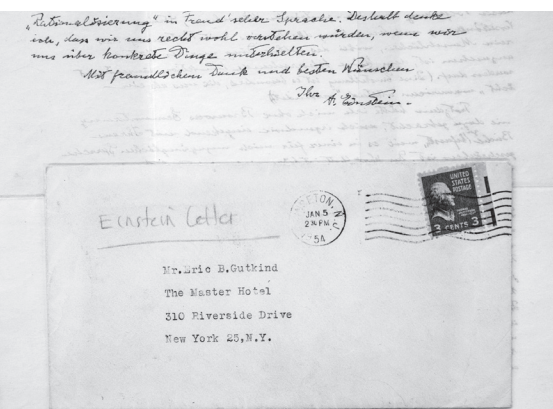 „Rationalisierung" in Freud'scher Sprache. Deshalb denke
ich, dass wir uns recht wohl verstehen würden, wenn wir
uns über konkrete Dinge unterhielten.
Mit freundlichem Dank und besten Wünschen
Ihr A. Einstein.
Einstein Letter
ETON, N.J.
JAN 5
2 PM
54
UNITED
STATES
POSTAGE
3 CENTS 3
Mr. Eric B. Gutkind
The Master Hotel
310 Riverside Drive
New York 25, N.Y.